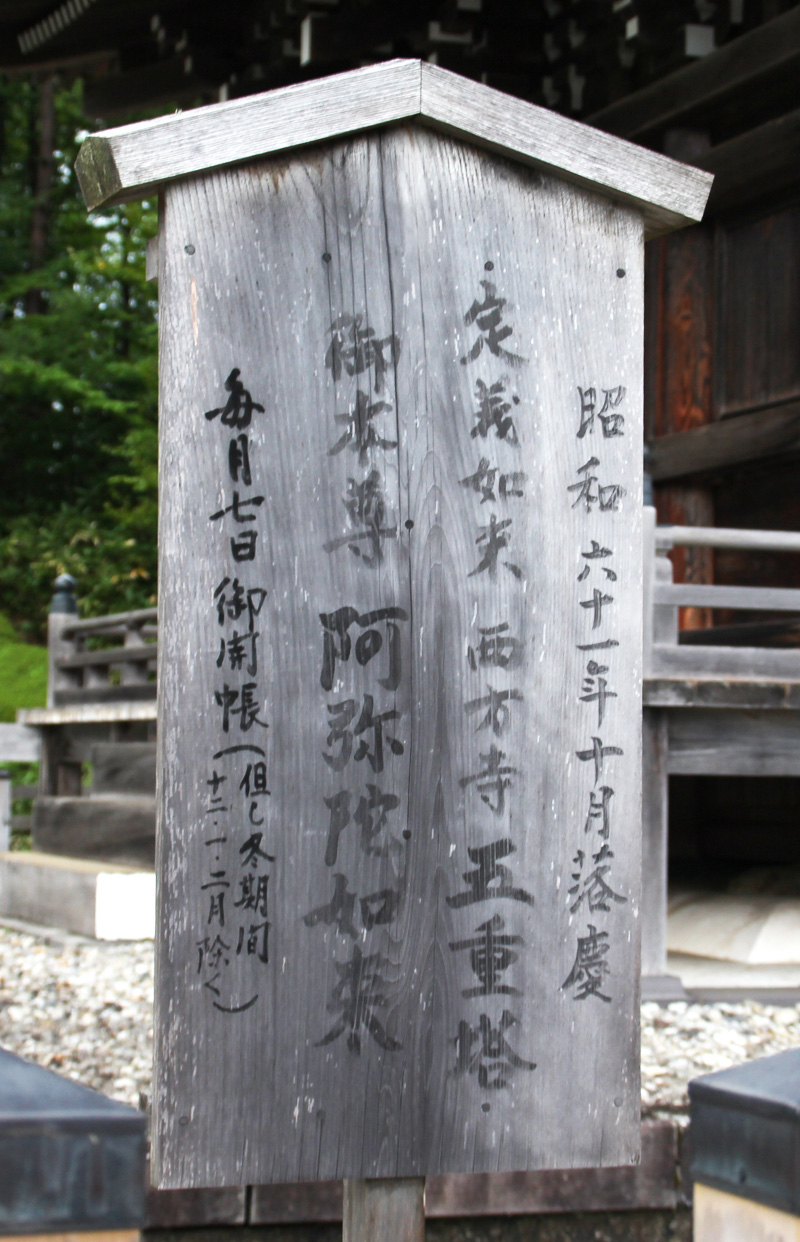 昭和六十一年十月落慶
定義如来 西方寺 五重塔
御本尊 阿弥陀如来
毎月七日 御開帳(但し冬期間
十二・一・二月除く)